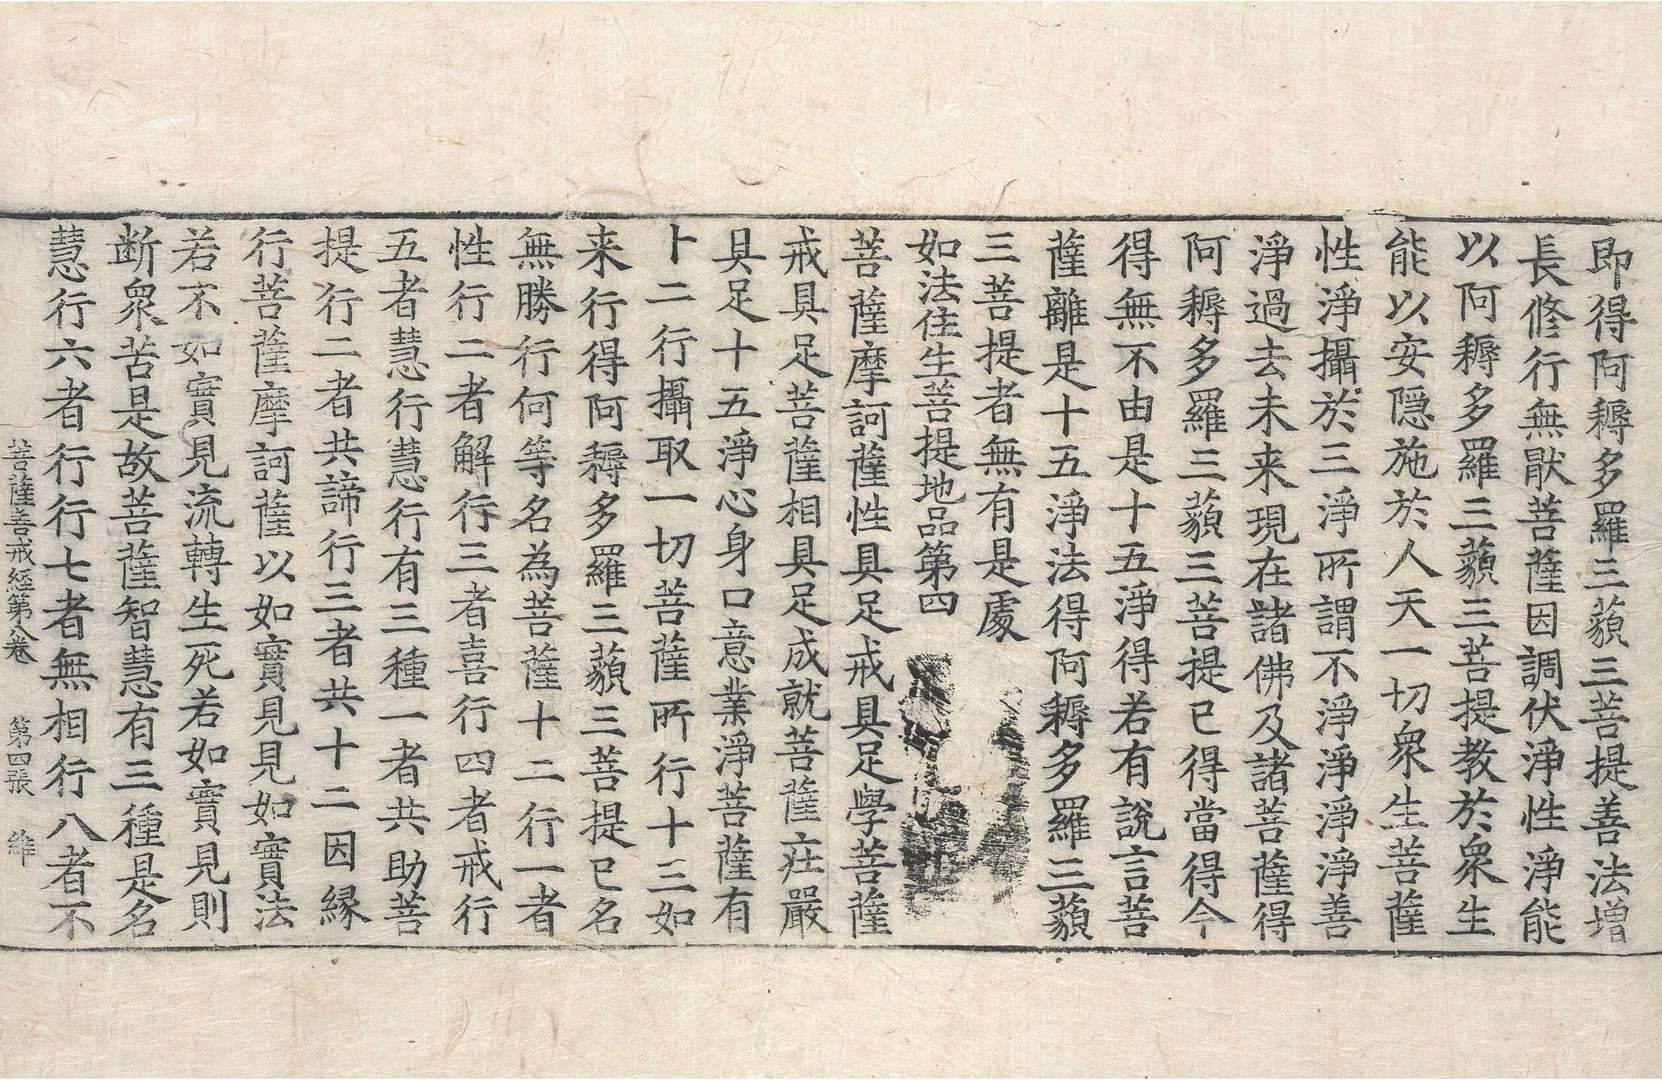 即得阿耨多羅三藐三菩提善法增
長修行無猒菩薩因調伏淨性淨能
以阿耨多羅三藐三菩提教於衆生
能以安隠施於人天一切衆生菩薩
性淨攝於三淨所謂不淨淨淨淨善
淨過去未来現在諸佛及諸菩薩得
阿耨多羅三藐三菩提已得當得今
得無不由是十五淨得若有說言菩
薩離是十五淨法得阿耨多羅三藐
三菩提者無有是處
如法住生菩提地品第四
菩薩摩訶薩性具足戒具足學菩薩
戒具足菩薩相具足成就菩薩莊嚴
具足十五淨心身口意業淨菩薩有
十二行攝取一切菩薩所行十三如
来行得阿耨多羅三藐三菩提已名
無勝行何等名為菩薩十二行一者
性行二者解行三者喜行四者戒行
五者慧行慧行有三種一者共助菩
提行二者共諦行三者共十二因縁
行菩薩摩訶薩以如實見見如實法
若不如實見流轉生死若如實見則
断衆苦是故菩薩智慧有三種是名
慧行六者行行七者無相行八者不
菩薩善戒經第八卷 第四張 維